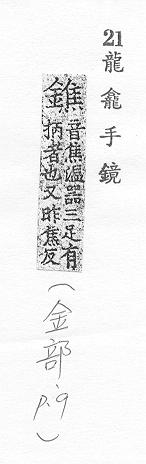 21 龍龕手鏡
鐎 音焦溫器三足有
柄者也又昨焦反
(金部、p.9)